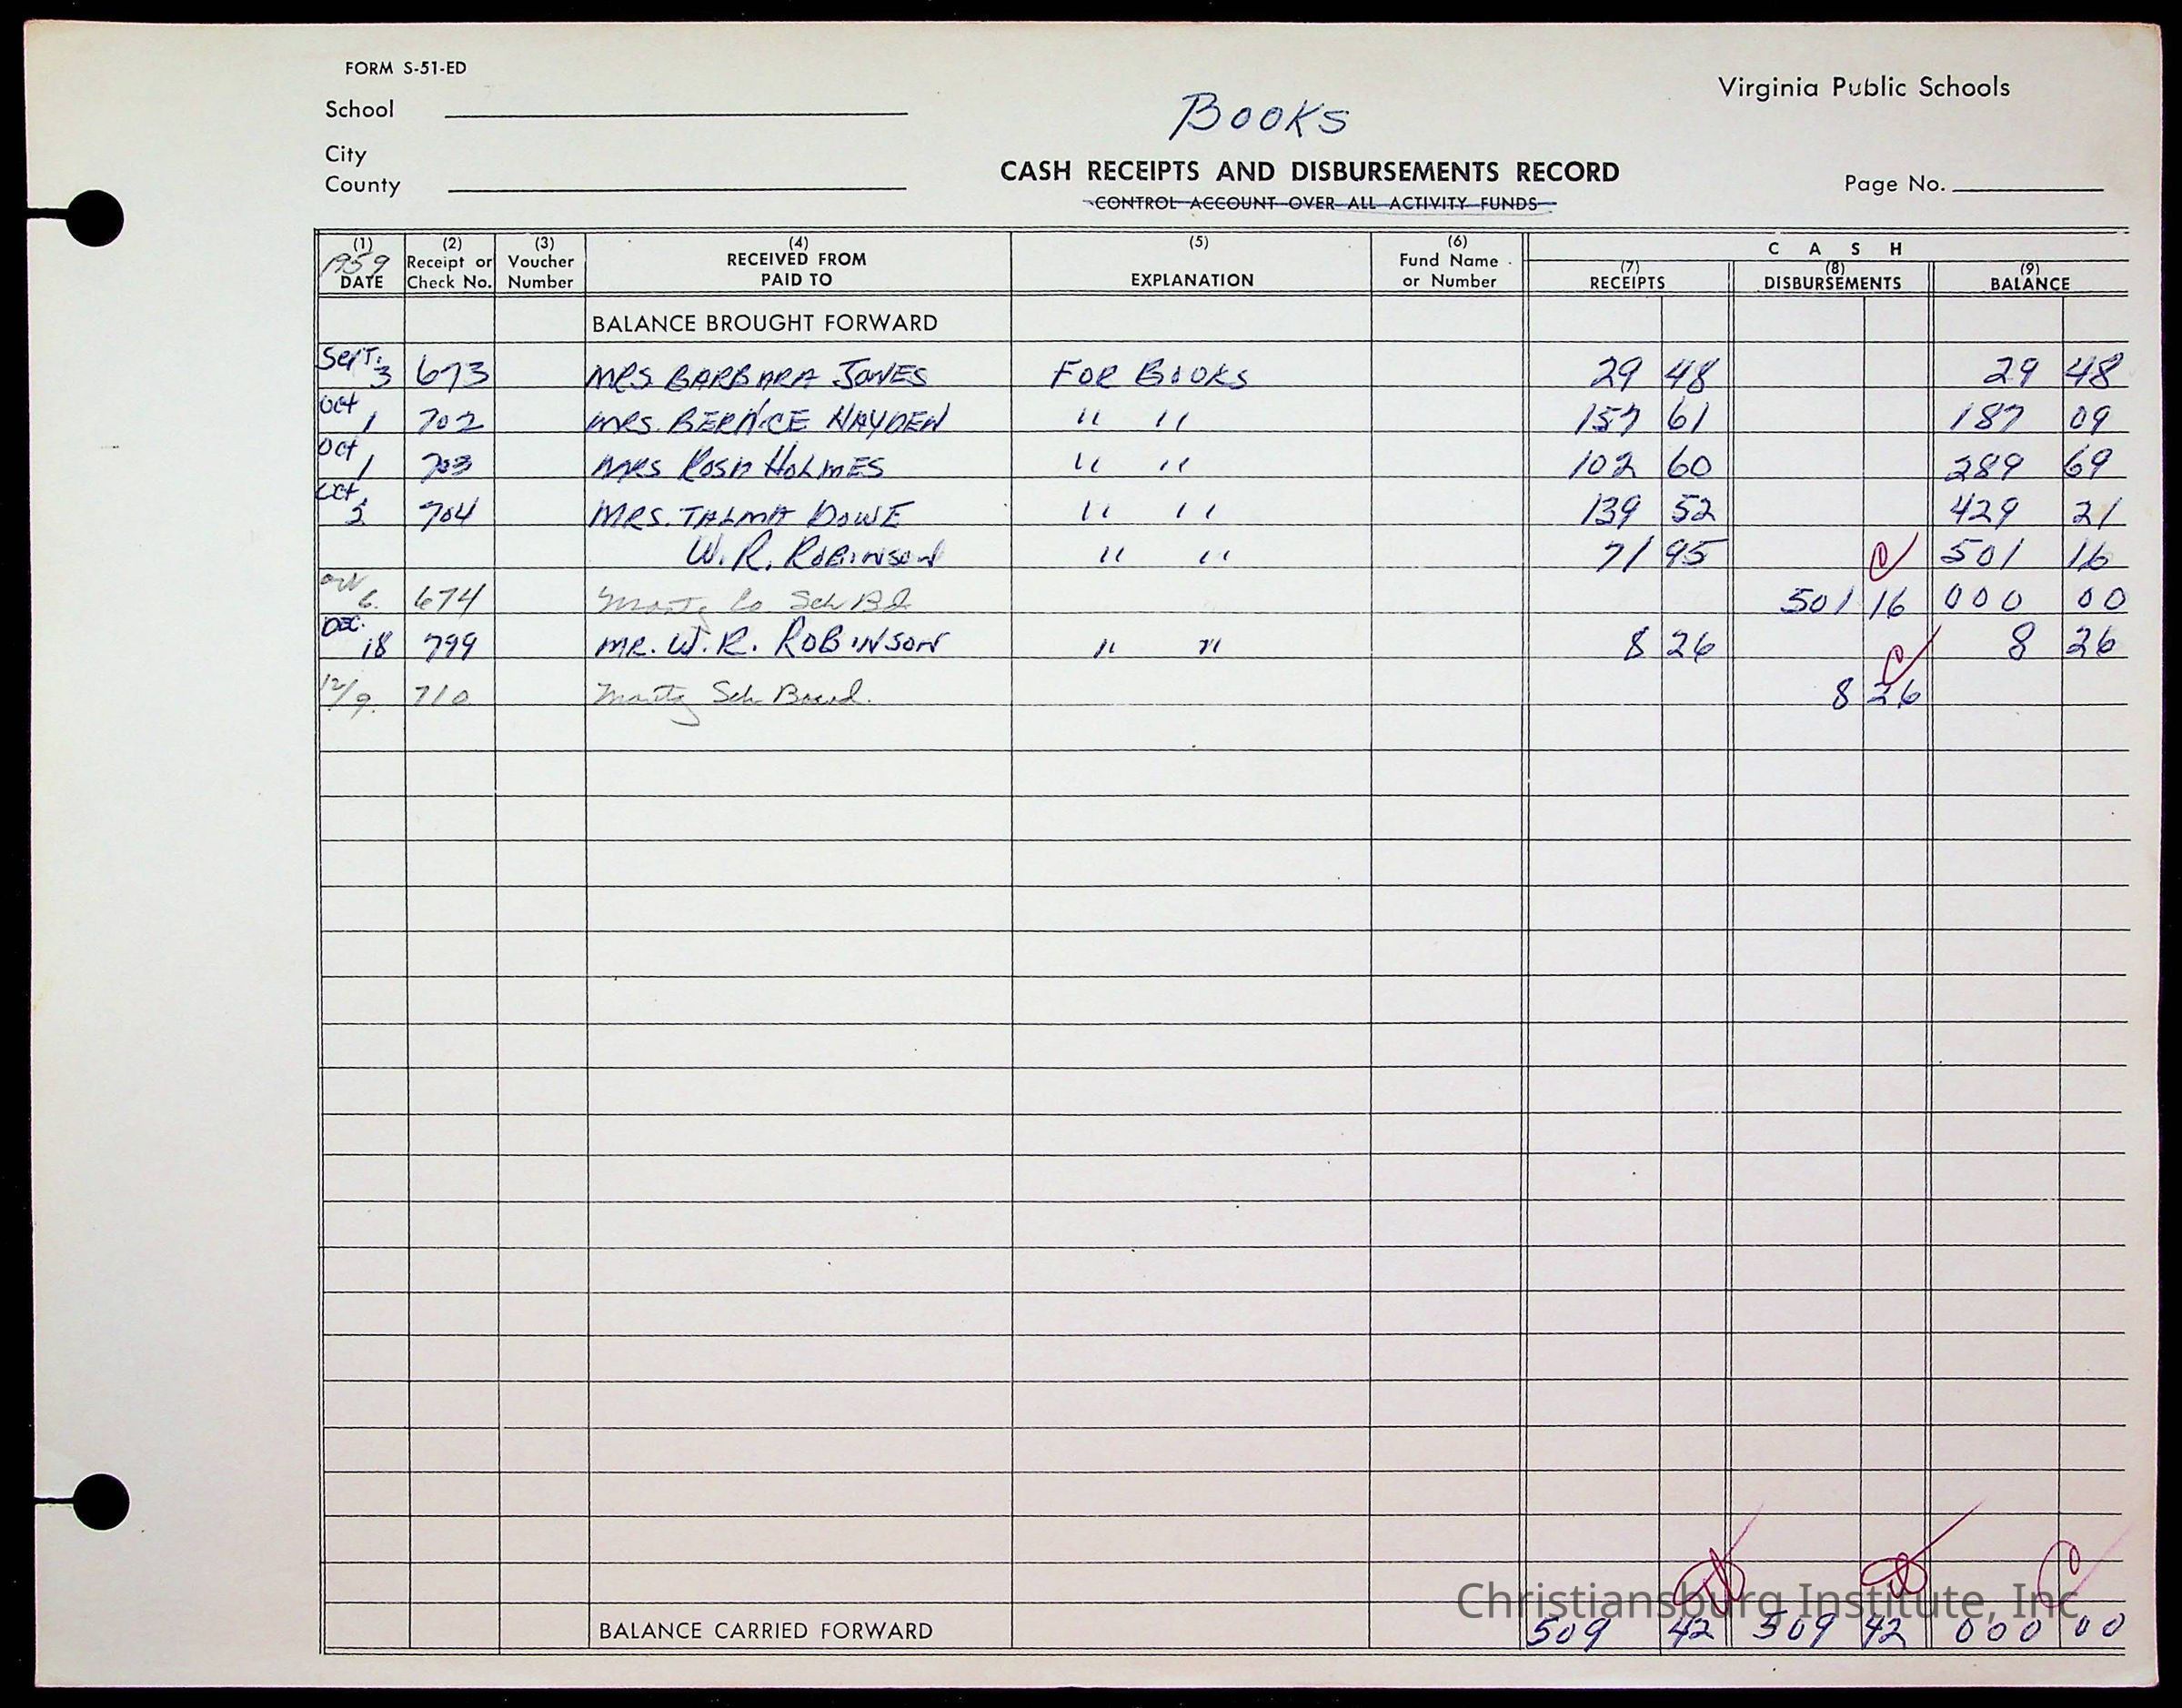 FORM S-51-ED
School
City
County
Books
CASH RECEIPTS AND DISBURSEMENTS RECORD
CONTROL ACCOUNT OVER ALL ACTIVITY FUNDS
Virginia Public Schools
Page No.
(1) 1959 DATE (2) Receipt or Check No. (3) Voucher Number (4) RECEIVED FROM PAID TO (5) EXPLANATION (6) Fund Name or Number CASH (7) RECEIPTS (8) DISBURSEMENTS (9) BALANCE
BALANCE BROUGHT FORWARD
Sept. 3 673 MRS BARBARA JONES FOR BOOKS 29 48 29 48
Oct 1 702 MRS. BERNICE HAYDEN " " 157 61 187 09
Oct 1 703 MRS ROSA HOLMES " " 102 60 289 69
Oct 2 704 MRS. TALMA DOWE " " 139 52 429 21
W. R. ROBINSON " " 71 95 501 16
6. 674 Montg Co Sch Bd 501 16 000 00
DEC. 18 799 MR. W. R. ROBINSON " " 8 26 8 26
12/9. 710 Montg Sch Board. 8 26
BALANCE CARRIED FORWARD 509 42 509 42 000 00
Christiansburg Institute, Inc